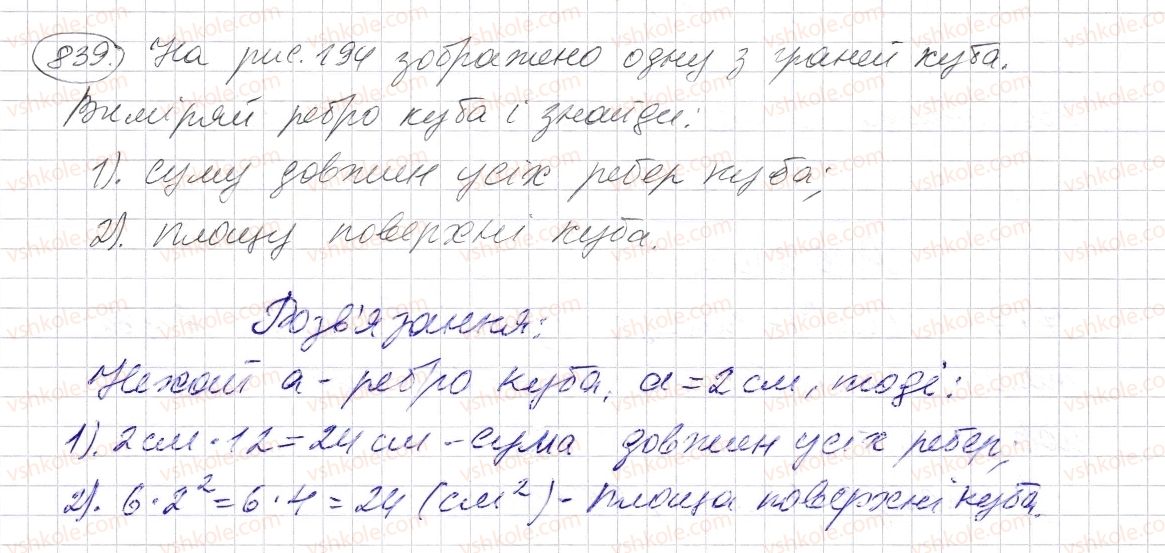 839. На рис. 194 зображено одну з граней куба.
Виміряй ребро куба і знайди:
1). суму довжин усіх ребер куба;
2). площу поверхні куба.
Розв'язання:
Нехай a - ребро куба, a = 2 см, тоді:
1). 2 см · 12 = 24 см - сума довжин усіх ребер;
2). 6 · 2² = 6 · 4 = 24 (см²) - площа поверхні куба.